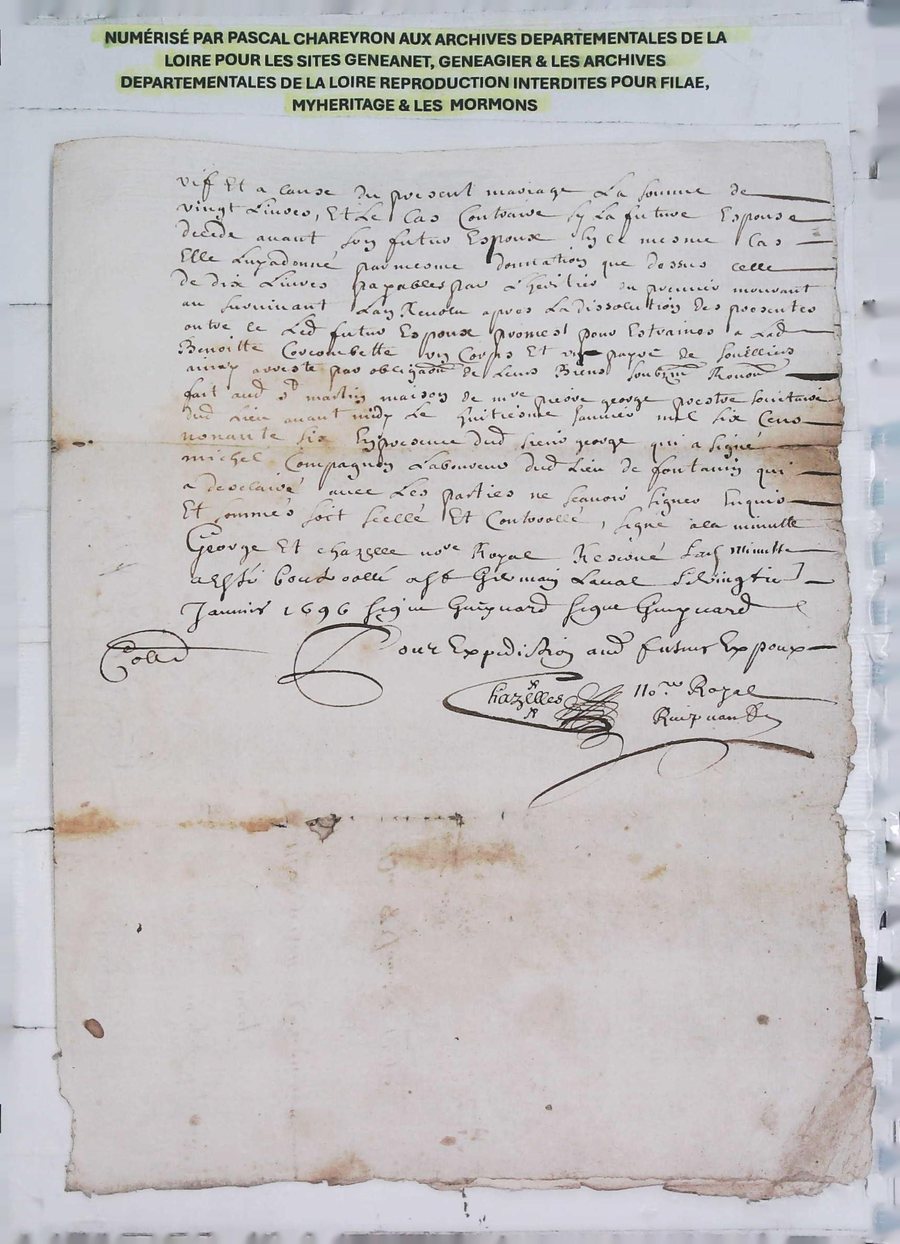 NUMÉRISÉ PAR PASCAL CHAREYRON AUX ARCHIVES DEPARTEMENTALES DE LA
LOIRE POUR LES SITES GENEANET, GENEAGIER & LES ARCHIVES
DEPARTEMENTALES DE LA LOIRE REPRODUCTION INTERDITES POUR FILAE,
MYHERITAGE & LES MORMONS
vif Et a cause du present mariage La somme de
vingt Livres, Et Le Cas Contraire sy La future Espouse
decede avant son futur Espoux En ce mesme Cas
Elle Luy a donné par mesme donnation que dessus celle
de dix Livres payables par L'heritier du premier mourant
au survivant L'an Revolu apres La dissolution des presentes
outre ce Led futur Espoux promest pour Estraines a Lad
Benoitte Corcombette un Corps Et une payre de Soulliers
ainsy arresté par obligaon de Leurs Biens Soubzmon Renon
fait aud St martin maison de mre pierre george prestre societaire
dud Lieu avant midy Le huitiesme Janvier mil six Cens
nonante six En presence dud sieur george qui a signé
michel Compagnon Laboureur dud Lieu de fontanin qui
a desclairé avec Les parties ne scavoir signer Enquis
Et sommés soit scellé Et Controllé, signé a la minutte
George Et chazelle nore Royal Resevé Lad minutte
a esté Controollé a St Germain Laval Le vingtie
Janvier 1696 signé Guipuard signé Guipuard
Pour Expedition aud futur Expoux
Colld
Chazelles nore Royal